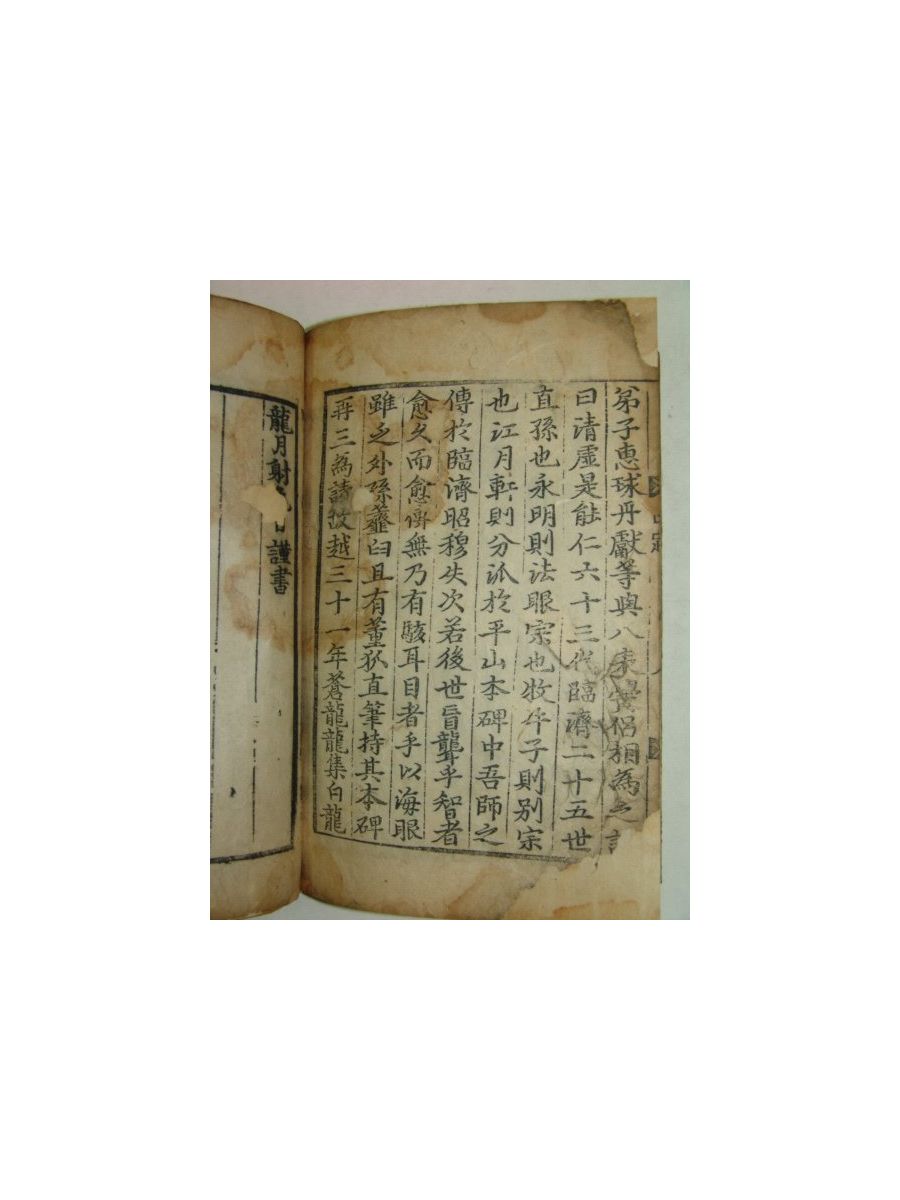 弟子惠球丹獻等與八表賢侶相爲之
曰清虛是能仁六十三代臨濟二十五世
直孫也永明則法眼宗也牧牛子則別宗
也江月軒則分派於平山本碑中吾師之
傳於臨濟昭穆失次若後世盲聾乎智者
愈久而愈傳無乃有駭耳目者乎以海眼
雖乏外孫虀臼且有董狐直筆持其本碑
再三爲請故越三十一年蒼龍龍集白龍
龍月射 日謹書